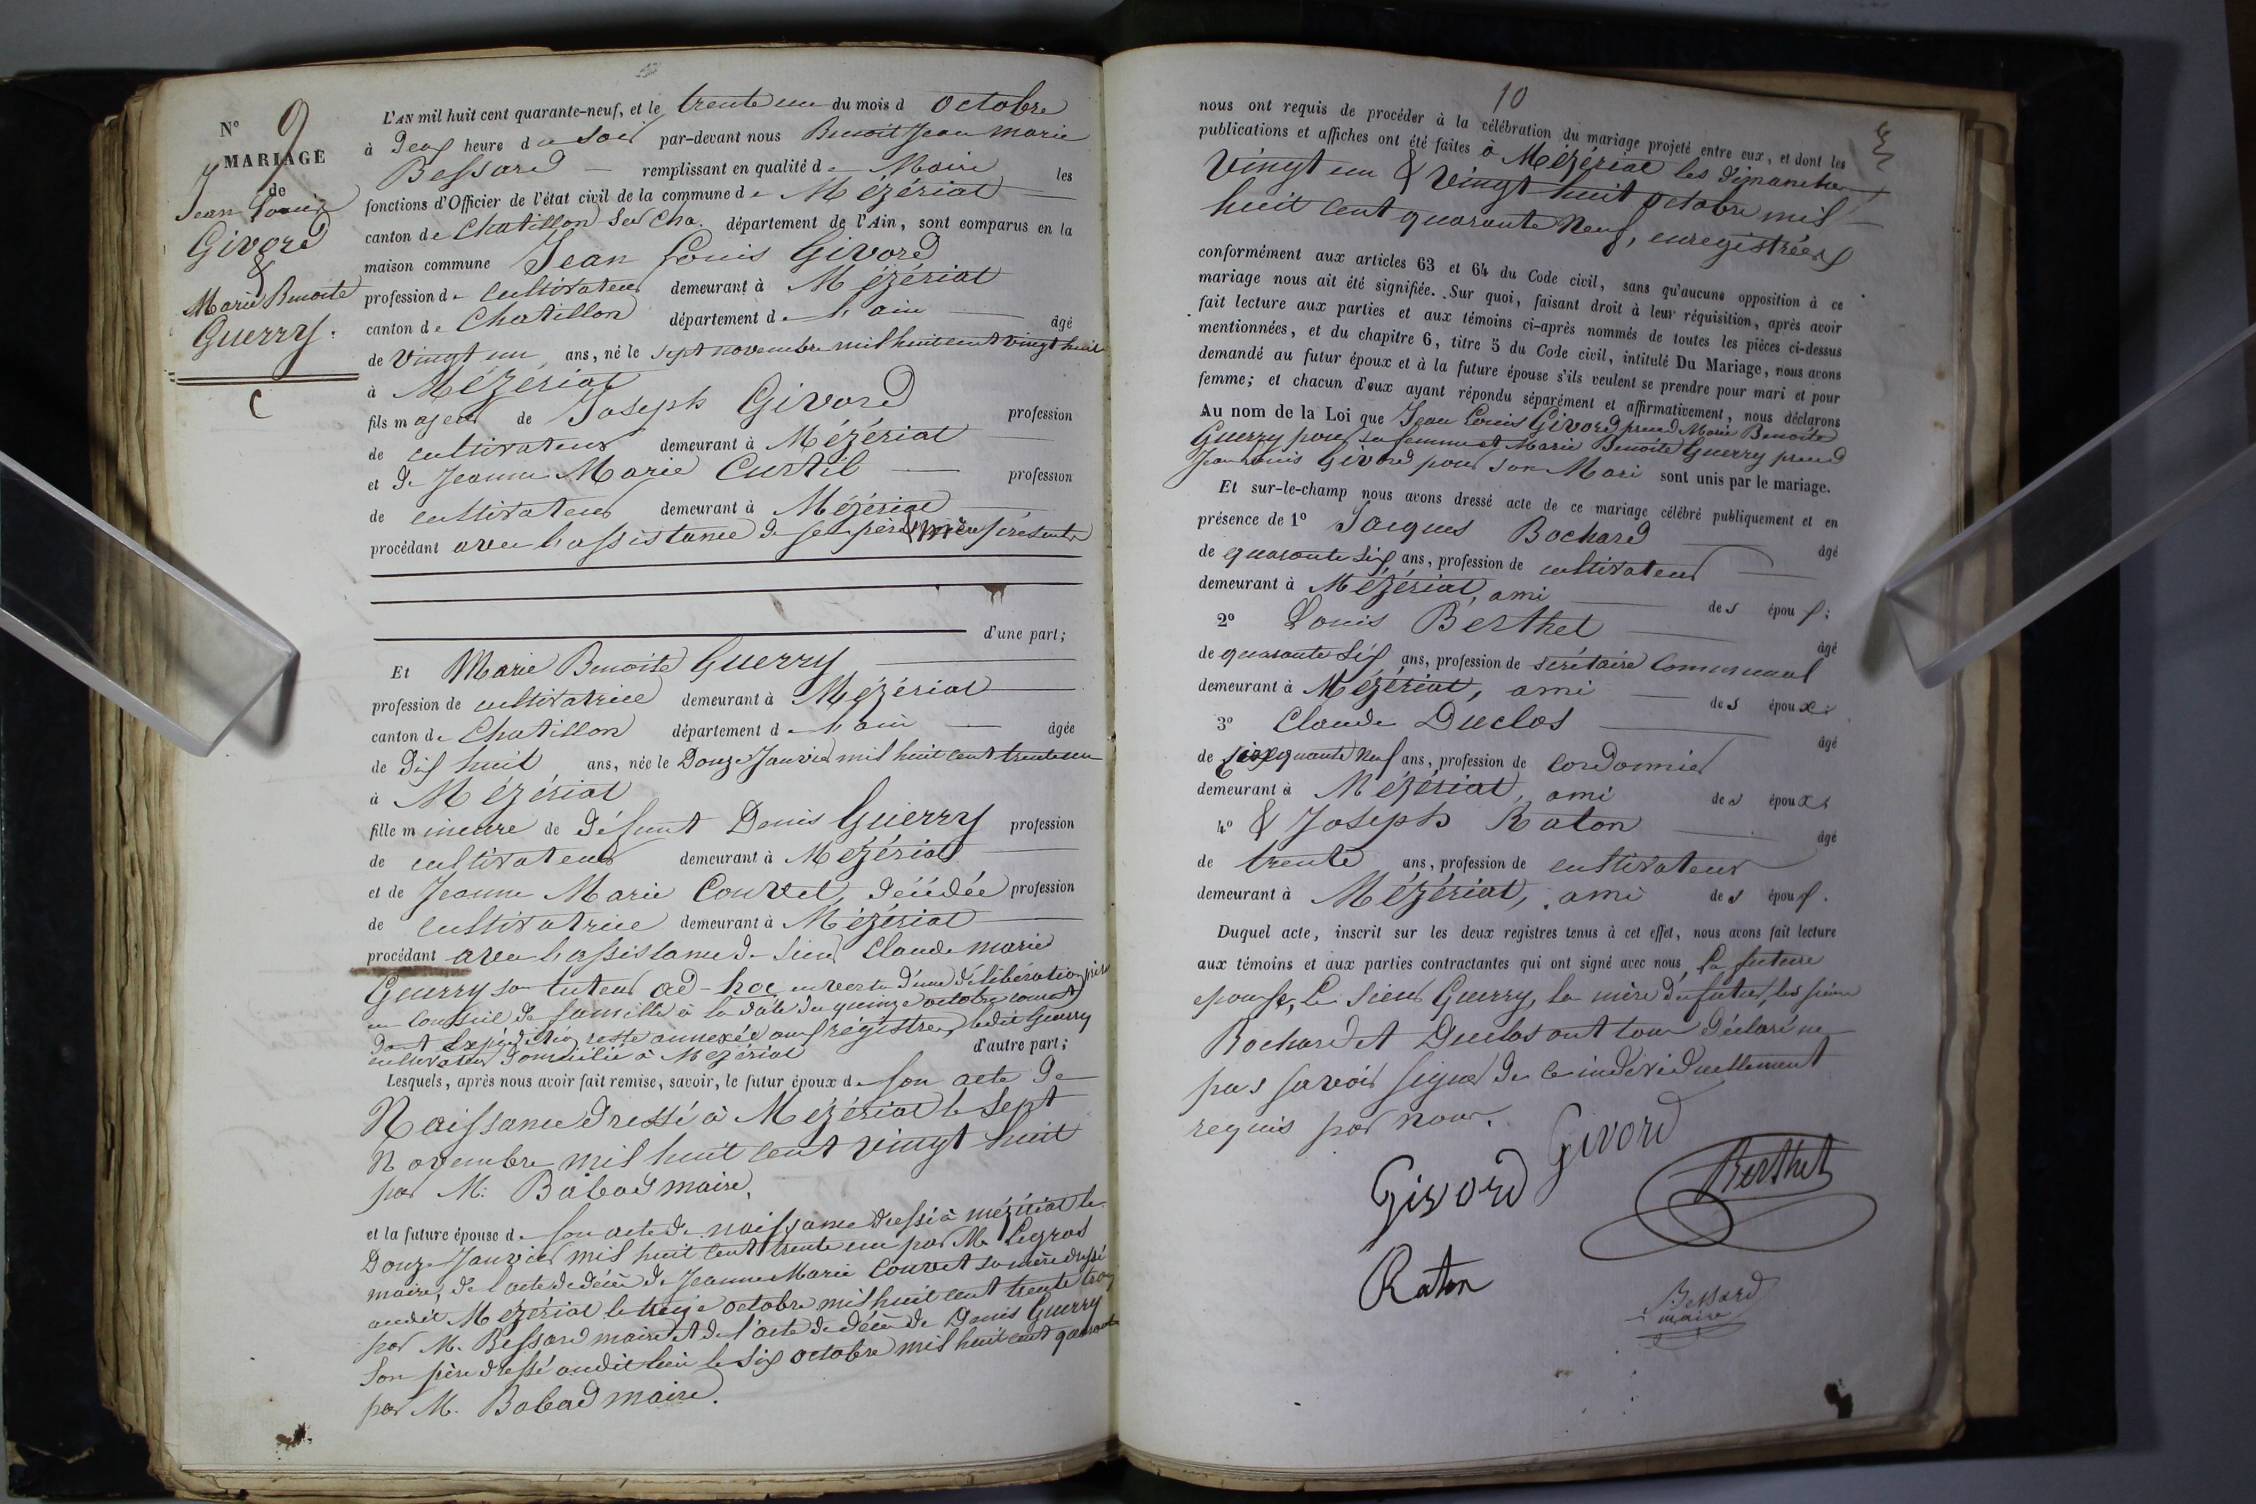 N° 9
MARIAGE
de
Jean Louis
Givord
&
Marie Benoite
Guerry.
C
L'AN mil huit cent quarante-neuf, et le trente un du mois d octobre
à deux heure du soir par-devant nous Benoit Jean Marie
Bessard — remplissant en qualité de Maire les
fonctions d'Officier de l'état civil de la commune de Mézériat
canton de Chatillon sur Cha. département de l'Ain, sont comparus en la
maison commune Jean Louis Givord
profession de cultivateur demeurant à Mézériat
canton de Chatillon département de l'ain âgé
de vingt un ans, né le sept novembre mil huit cent vingt huit
à Mézériat
fils majeur de Joseph Givord profession
de cultivateur demeurant à Mézériat
et de Jeanne Marie Curtil — profession
de cultivateur demeurant à Mézériat
procédant avec l'assistance de ses père & mère présents
d'une part;
Et Marie Benoite Guerry
profession de cultivatrice demeurant à Mézériat
canton de Chatillon département de l'ain — âgée
de dix huit ans, née le Douze Janvier mil huit cent trente un
à Mézériat
fille mineure de défunt Denis Guerry profession
de cultivateur demeurant à Mézériat
et de Jeanne Marie Couvet, décédée profession
de cultivatrice demeurant à Mézériat
procédant avec l'assistance de sieur Claude Marie
Guerry son tuteur ad-hoc en vertu d'une délibération prise
en Conseil de famille à la date du quinze octobre courant
dont expédition reste annexée aux régistres, ledit Guerry
cultivateur domicilié à Mézériat d'autre part;
Lesquels, après nous avoir fait remise, savoir, le futur époux de son acte de
Naissance dressé à Mézériat le sept
Novembre mil huit cent vingt huit
par M. Babad maire,
et la future épouse de son acte de naissance dressé à mézériat le
Douze Janvier mil huit cent trente un par M. Legros
maire, de l'acte de décès de Jeanne Marie Couvet sa mère dressé
audit Mézériat le treize octobre mil huit cent trente trois
par M. Bessard maire et de l'acte de décès de Denis Guerry
son père dressé audit lieu le six octobre mil huit cent quarante
par M. Babad maire.
10
nous ont requis de procéder à la célébration du mariage projeté entre eux, et dont les
publications et affiches ont été faites à Mézériat les dimanches
vingt un & vingt huit octobre mil
huit cent quarante neuf, enregistrées
conformément aux articles 63 et 64 du Code civil, sans qu'aucune opposition à ce
mariage nous ait été signifiée. Sur quoi, faisant droit à leur réquisition, après avoir
fait lecture aux parties et aux témoins ci-après nommés de toutes les pièces ci-dessus
mentionnées, et du chapitre 6, titre 5 du Code civil, intitulé Du Mariage, nous avons
demandé au futur époux et à la future épouse s'ils veulent se prendre pour mari et pour
femme; et chacun d'eux ayant répondu séparément et affirmativement, nous déclarons
Au nom de la Loi que Jean Louis Givord prend Marie Benoite
Guerry pour sa femme et Marie Benoite Guerry prend
Jean Louis Givord pour son Mari sont unis par le mariage.
Et sur-le-champ nous avons dressé acte de ce mariage célébré publiquement et en
présence de 1° Jacques Bochard âgé
de quarante six ans, profession de cultivateur
demeurant à Mézériat, ami des époux;
2° Louis Berthet âgé
de quarante six ans, profession de secrétaire Communal
demeurant à Mézériat, ami des époux;
3° Claude Duclos âgé
de cinquante neuf ans, profession de cordonnier
demeurant à Mézériat, ami des époux;
4° & Joseph Raton âgé
de trente ans, profession de cultivateur
demeurant à Mézériat, ami des époux.
Duquel acte, inscrit sur les deux registres tenus à cet effet, nous avons fait lecture
aux témoins et aux parties contractantes qui ont signé avec nous, la future
épouse, le sieur Guerry, la mère du futur, les sieurs
Bochard et Duclos ont tous déclaré ne
pas savoir signer de ce individuellement
requis par nous.
Givord Givord
Berthet
Raton
Bessard
maire